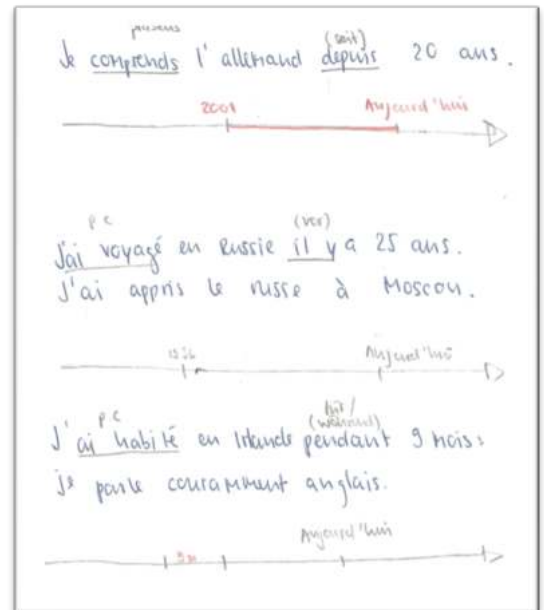 présens
(seit)
Je comprends l'allemand depuis 20 ans.
2001 Aujourd'hui
p c
(vor)
J'ai voyagé en Russie il y a 25 ans.
J'ai appris le russe à Moscou.
Aujourd'hui
p c
(während)
J'ai habité en Irlande pendant 9 mois:
je parle couramment anglais.
Aujourd'hui
9m